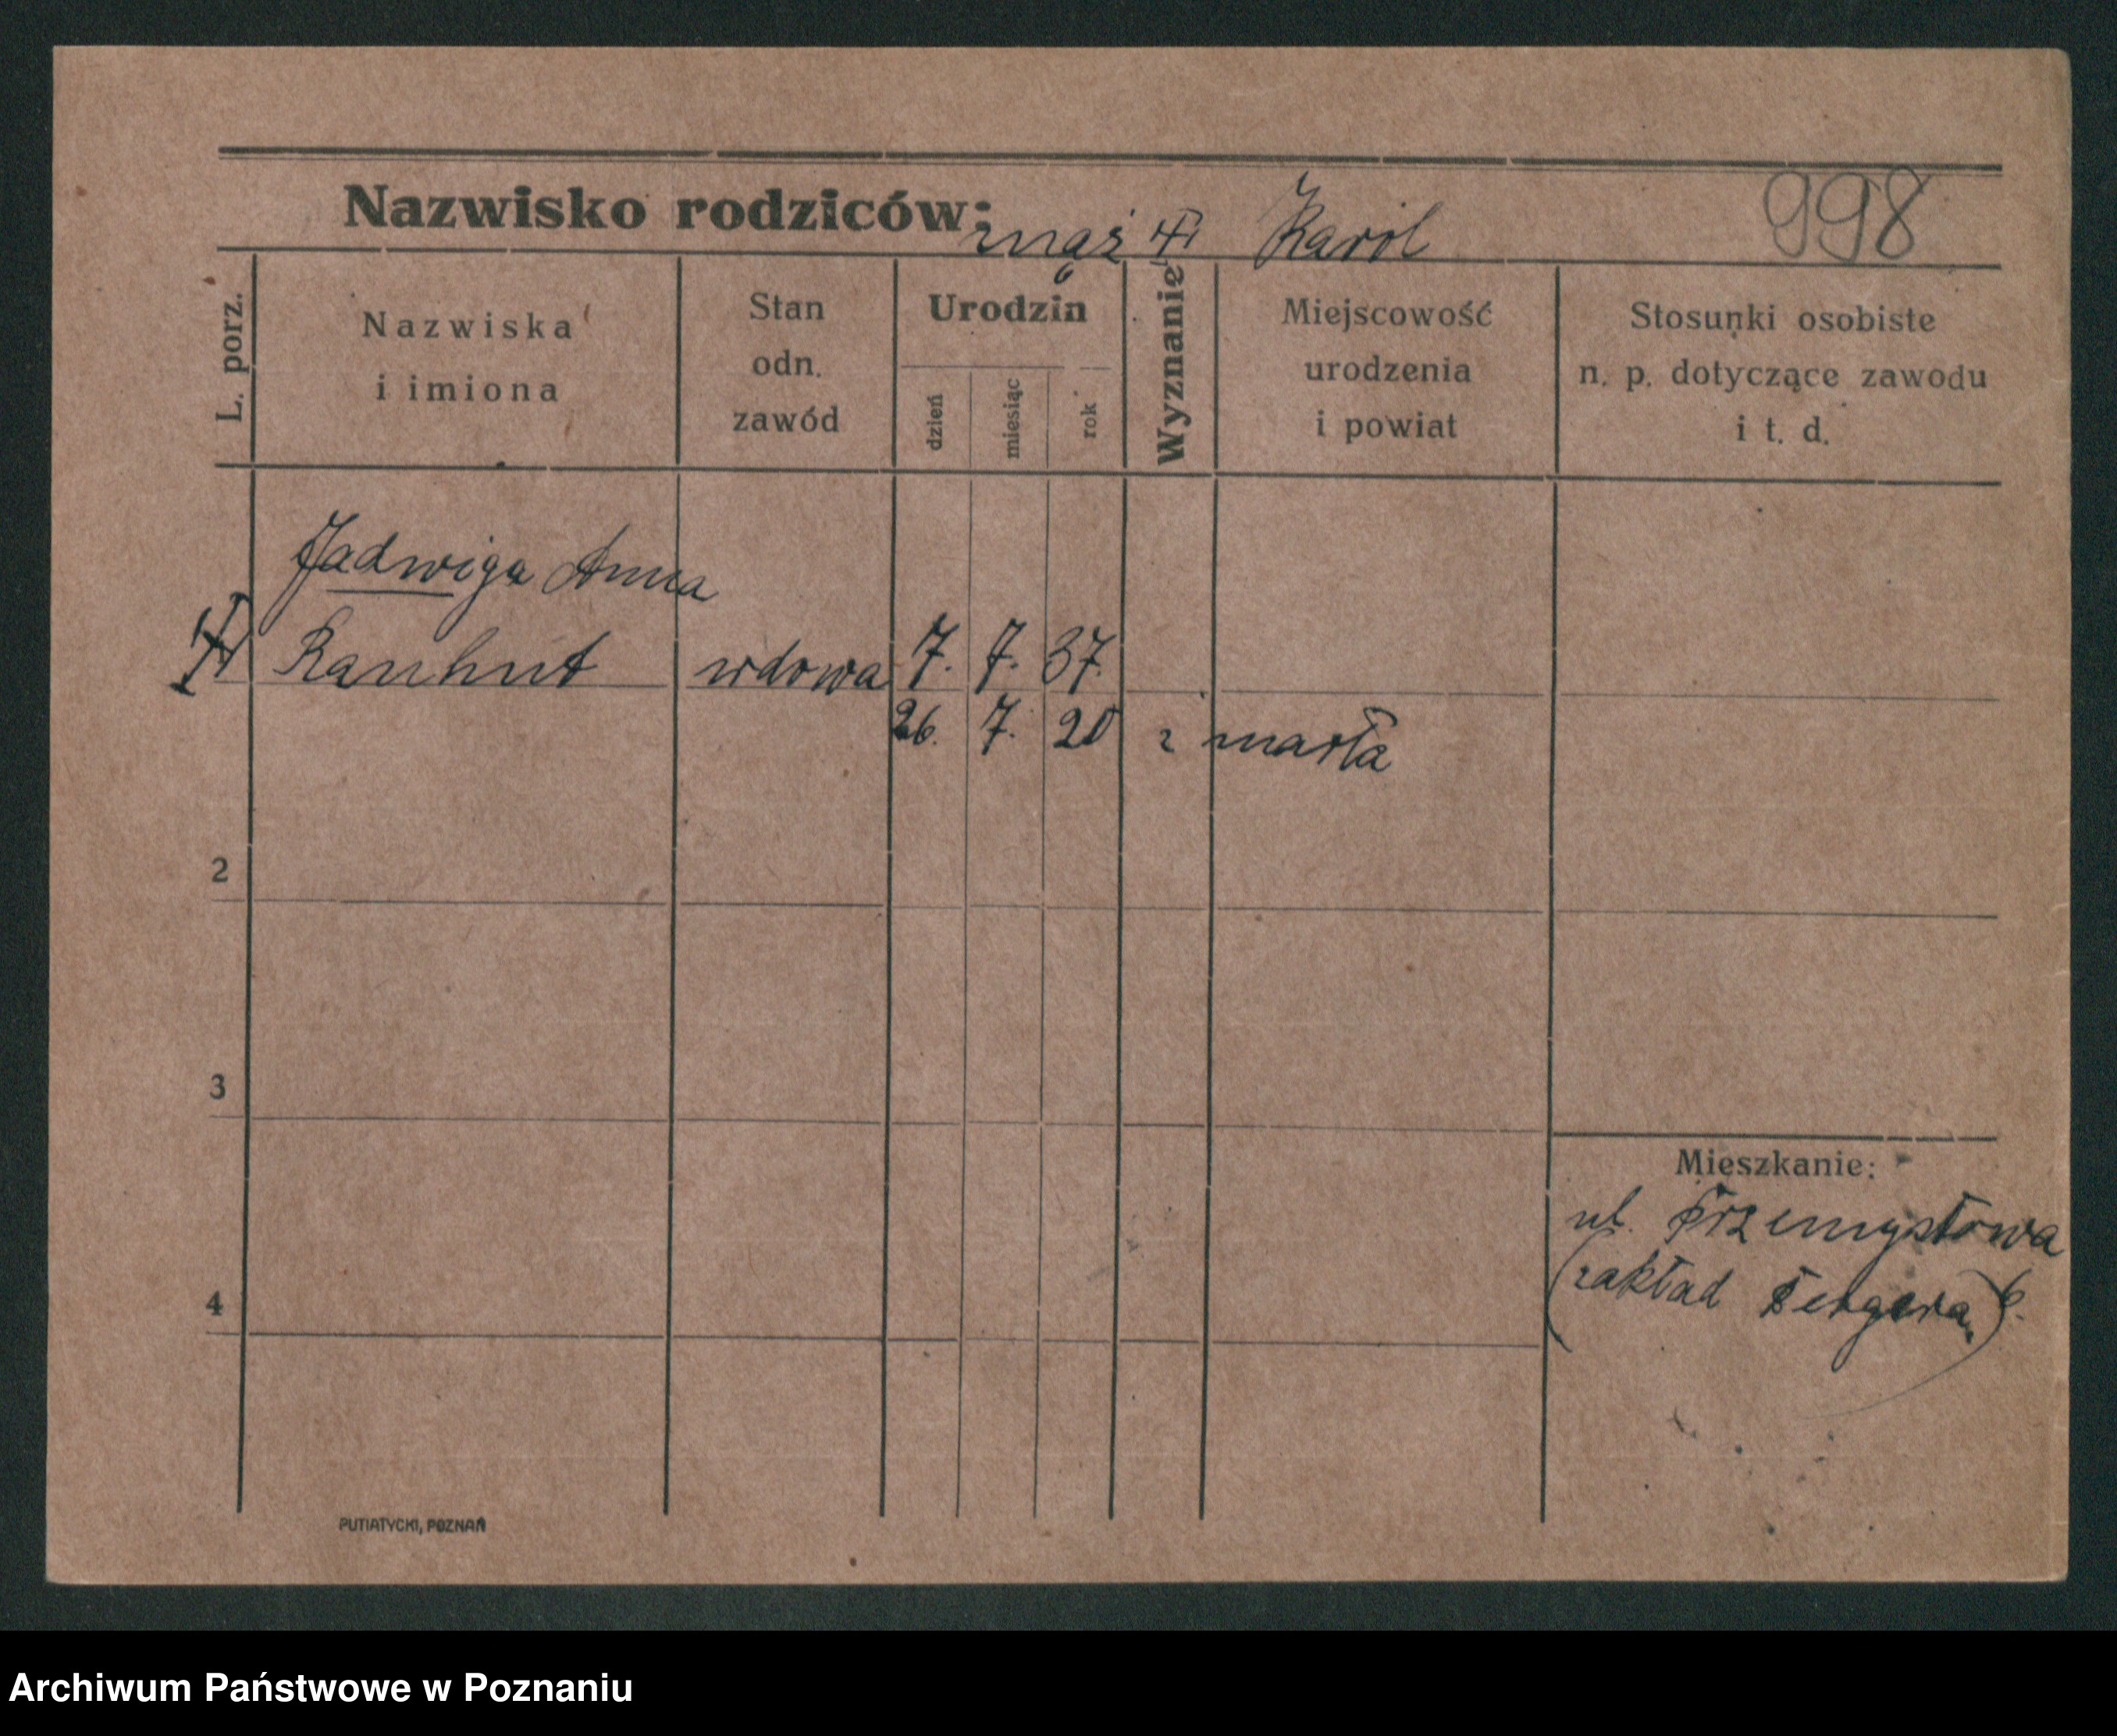 998
Nazwisko rodziców: mąż Karol
L. porz.
Nazwiska
i imiona
Stan
odn.
zawód
Urodzin
dzień
miesiąc
rok
Wyznanie
Miejscowość
urodzenia
i powiat
Stosunki osobiste
n. p. dotyczące zawodu
i t. d.
Jadwiga Anna
Rauhut wdowa 7. 7. 37.
26. 7. 20 zmarła
2
3
4
Mieszkanie:
ul. Przemysłowa
(zakład
PUTIATYCKI, POZNAŃ
Archiwum Państwowe w Poznaniu